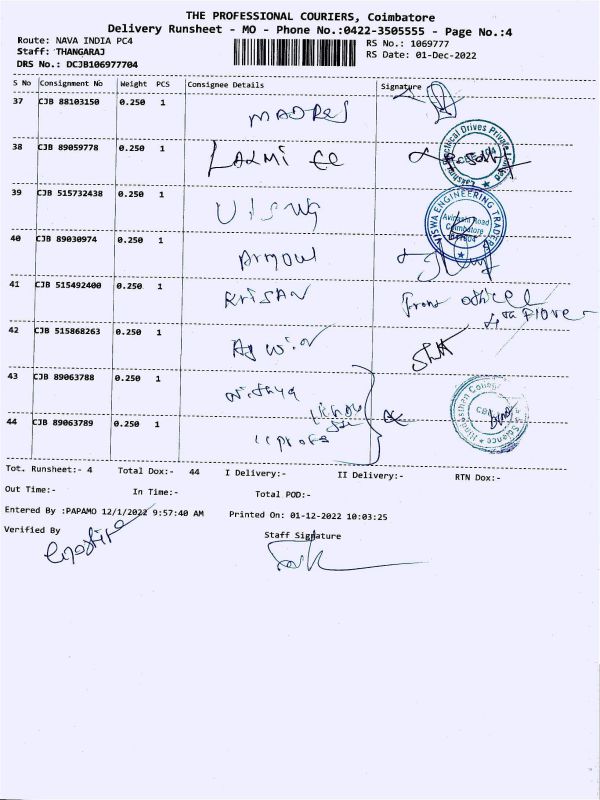 THE PROFESSIONAL COURIERS, Coimbatore
Delivery Runsheet - MO - Phone No.:0422-3505555 - Page No.:4
Route: NAVA INDIA PC4
RS No.: 1069777
Staff: THANGARAJ
RS Date: 01-Dec-2022
DRS No.: DCJB106977704
S No Consignment No Weight PCS Consignee Details Signature
37 CJB 88103150 0.250 1
38 CJB 89059778 0.250 1 LAXMI
39 CJB 515732438 0.250 1
VISWA ENGINEERING TRADERS Avinashi Road Coimbatore
40 CJB 89030974 0.250 1
41 CJB 515492400 0.250 1 KRISAN
42 CJB 515868263 0.250 1
43 CJB 89063788 0.250 1 Nithya
44 CJB 89063789 0.250 1
Tot. Runsheet:- 4 Total Dox:- 44 I Delivery:- II Delivery:- RTN Dox:-
Out Time:- In Time:- Total POD:-
Entered By :PAPAMO 12/1/2022 9:57:40 AM Printed On: 01-12-2022 10:03:25
Verified By Staff Signature